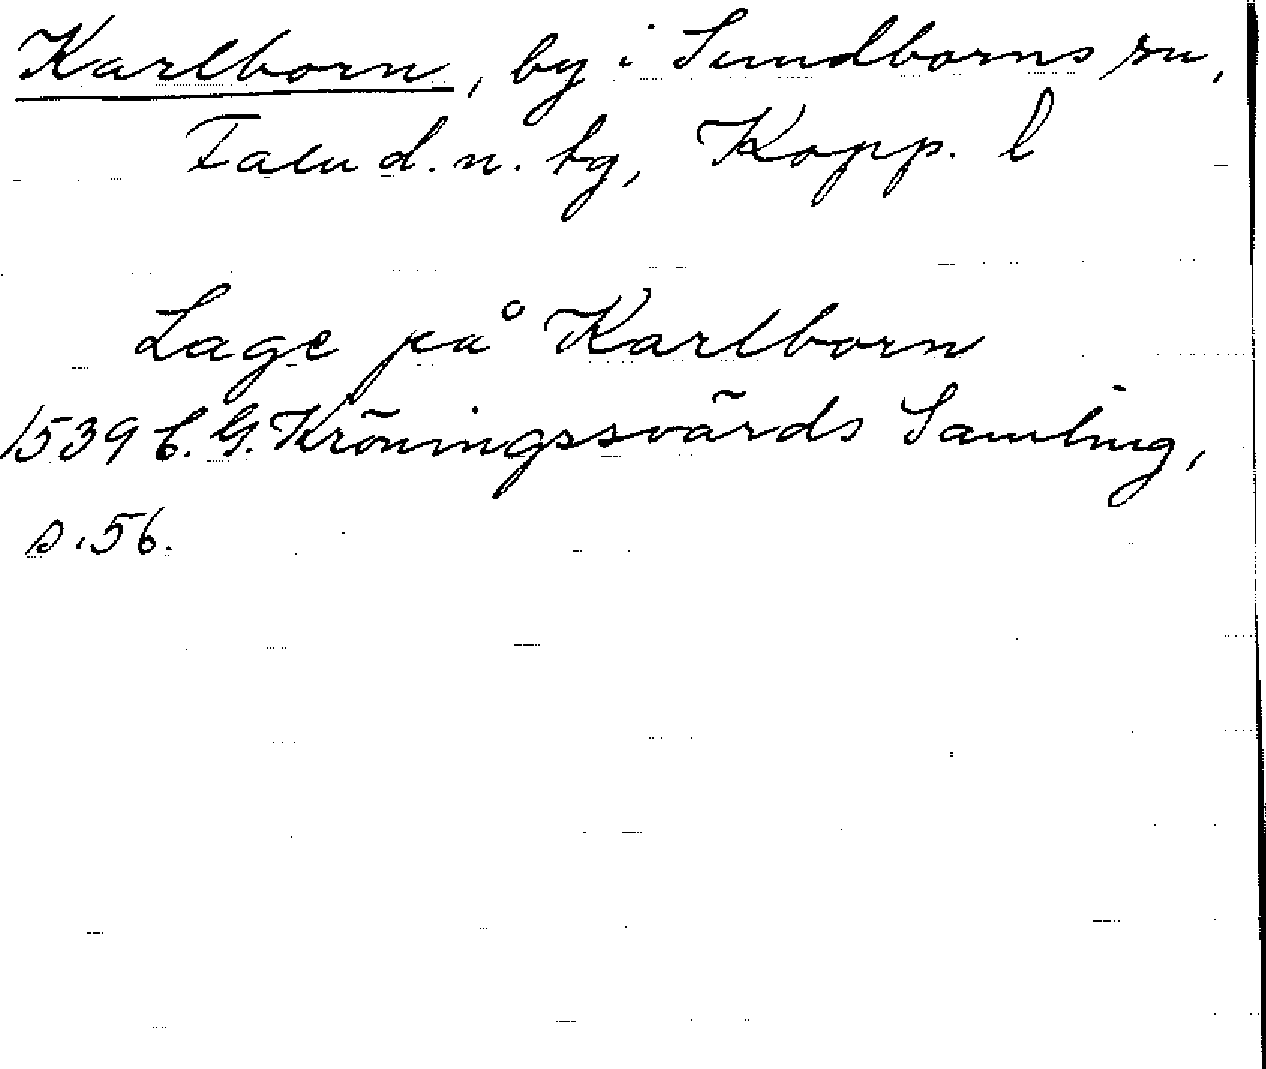 Karlborn, by i Sundborns sn,
Falu d. n. tg, Kopp. l
Lage på Karlborn
1539 C. G. Kröningssvärds Samling,
s. 56.